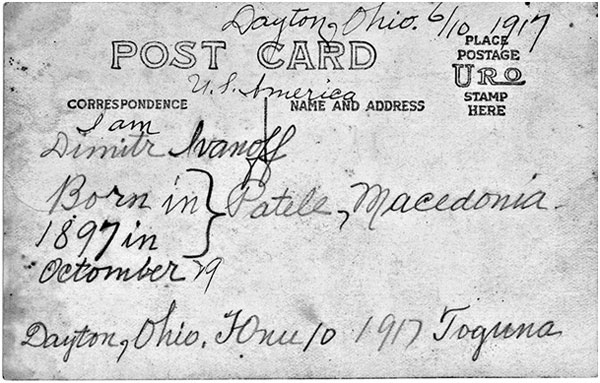 Dayton, Ohio. 6/10 1917
POST CARD
U.S. America
PLACE
POSTAGE
URO
STAMP
HERE
CORRESPONDENCE
NAME AND ADDRESS
I am
Dimitr Ivanoff
Born in } Patele, Macedonia.
1897 in
Octomber 19
Dayton, Ohio. Юни 10 1917 Година